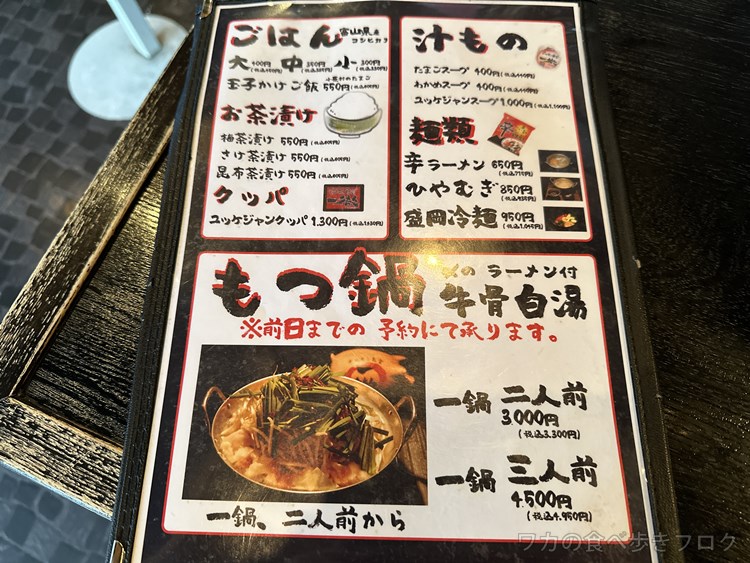 ごはん 富山県産 コシヒカリ
大 400円 中 350円 小 300円
小
玉子かけご飯 550円
お茶漬け
梅茶漬け 550円
さけ茶漬け 550円
昆布茶漬け 550円
クッパ
ユッケジャンクッパ 1,300円
汁もの
たまごスープ 400円
わかめスープ 400円
ユッケジャンスープ 1,000円
麺類
辛ラーメン 650円
ひやむぎ 850円
盛岡冷麺 950円
(税込1,045円)
もつ鍋 〆の ラーメン付
牛骨白湯
※前日までの 予約にて承ります。
一鍋 二人前
3,000円
(税込3,300円)
一鍋 三人前
4,500円
(税込4,950円)
一鍋、二人前から
ワカの食べ歩きブログ